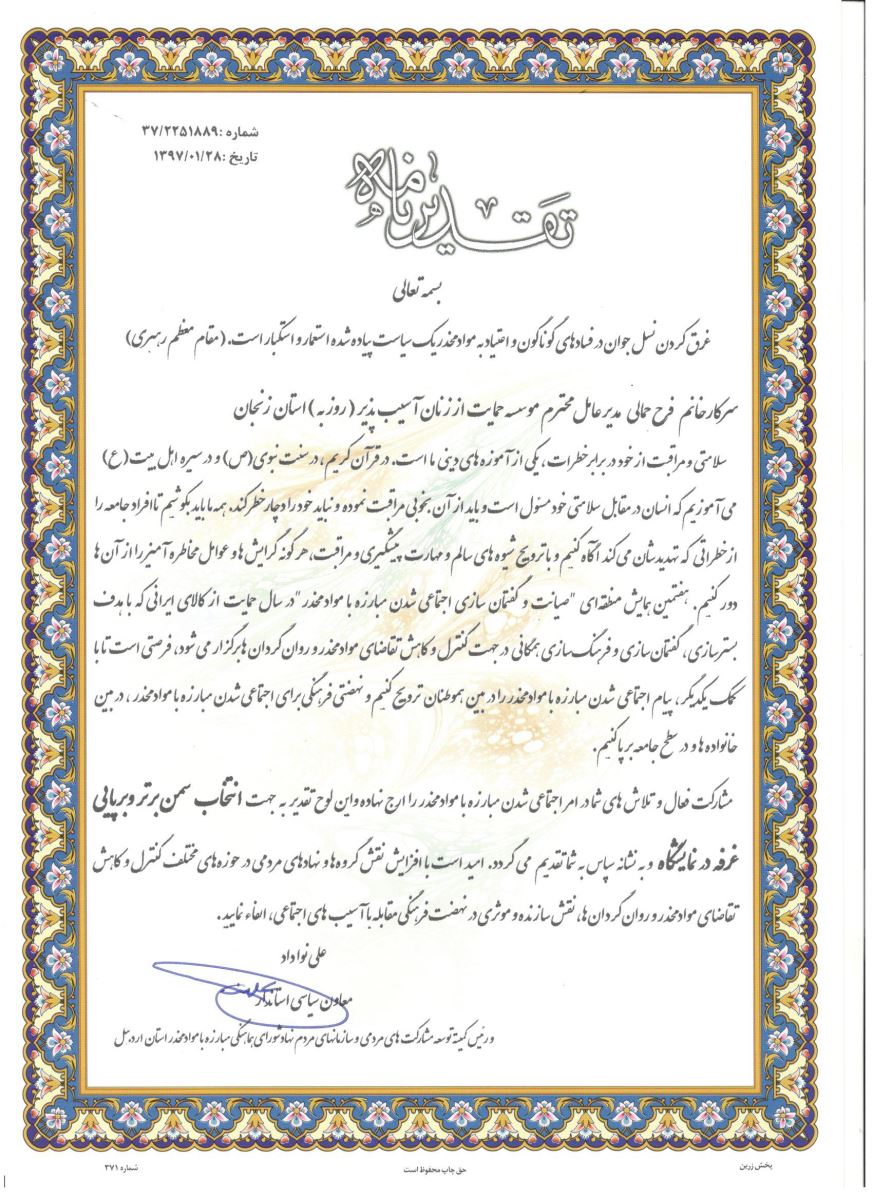 شماره :۳۷/۲۲۵۱۸۸۹
تاریخ :۱۳۹۷/۰۱/۲۸
تقدیرنامه
بسمه تعالی
غرق کردن نسل جوان در فسادهای گوناگون و اعتیاد به مواد مخدر یک سیاست پیاده شده استعمار و استکبار است. (مقام معظم رهبری)
سرکار خانم فرح جمالی مدیر عامل محترم موسسه حمایت از زنان آسیب پذیر (روزبه) استان زنجان
سلامتی و مراقبت از خود در برابر خطرات، یکی از آموزه های دینی ما است. در قرآن کریم، در سنت نبوی(ص) و در سیره اهل بیت (ع)
می آموزیم که انسان در مقابل سلامتی خود مسئول است و باید از آن بخوبی مراقبت نموده و نباید خود را دچار خطر کند. همه ما باید بکوشیم تا افراد جامعه را
از خطراتی که تهدیدشان می کند آگاه کنیم و با ترویج شیوه های سالم و مهارت پیشگیری و مراقبت، هر گونه گرایش ها و عوامل مخاطره آمیز را از آن ها
دور کنیم. هفتمین همایش منطقه ای "صیانت و گفتمان سازی اجتماعی شدن مبارزه با مواد مخدر "در سال حمایت از کالای ایرانی که با هدف
بسترسازی، گفتمان سازی و فرهنگ سازی همگانی در جهت کنترل و کاهش تقاضای مواد مخدر و روان گردان ها برگزار می شود، فرصتی است تا با
کمک یکدیگر، پیام اجتماعی شدن مبارزه با مواد مخدر را در بین هموطنان ترویج کنیم و نهضتی فرهنگی برای اجتماعی شدن مبارزه با مواد مخدر، در بین
خانواده ها و در سطح جامعه برپا کنیم.
مشارکت فعال و تلاش های شما در امر اجتماعی شدن مبارزه با مواد مخدر را ارج نهاده و این لوح تقدیر به جهت انتخاب سمن برتر و برپایی
غرفه در نمایشگاه و به نشانه سپاس به شما تقدیم می گردد. امید است با افزایش نقش گروه ها و نهادهای مردمی در حوزه های مختلف کنترل و کاهش
تقاضای مواد مخدر و روان گردان ها، نقش سازنده و موثری در نهضت فرهنگی مقابله با آسیب های اجتماعی، ایفاء نمایید.
علی نواداد
معاون سیاسی استاندار
و رئیس کمیته توسعه مشارکت های مردمی و سازمانهای مردم نهاد شورای هماهنگی مبارزه با مواد مخدر استان اردبیل
پخش زرین
حق چاپ محفوظ است
شماره ۳۷۱